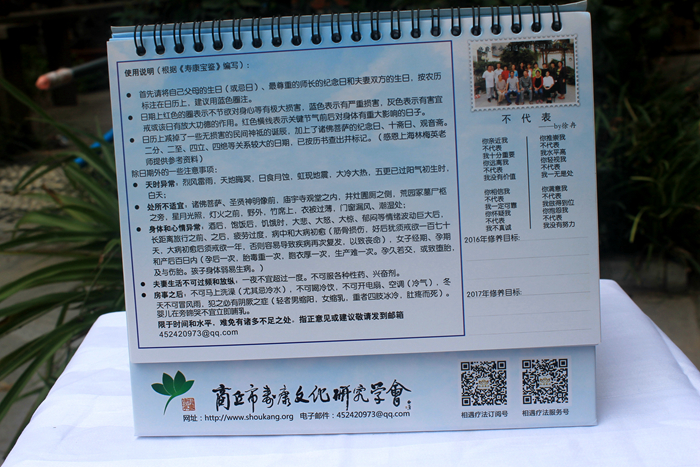 使用说明（根据《寿康宝鉴》编写）：
● 首先请将自己父母的生日（或忌日）、最尊重的师长的纪念日和夫妻双方的生日，按农历
标注在日历上，建议用蓝色圈注。
● 日期上红色的圈表示不节欲对身心等有极大损害，蓝色表示有严重损害，灰色表示有害宜
戒或该日有放大功德的作用。红色横线表示关键节气前后对身体有重大影响的日子。
● 日历上减掉了一些无损害的民间神祗的诞辰，加上了诸佛菩萨的纪念日、十斋日、观音斋。
二分、二至、四立、四绝等关系较大的日期，已按历书查出并标记。（感恩上海林梅英老
师提供参考资料）
除日期外的一些注意事项：
● 天时异常：烈风雷雨，天地晦冥，日食月蚀，虹现地震，大冷大热，五更已过阳气初生时，
白天；
● 处所不适宜，诸佛菩萨、圣贤神明像前，庙宇寺观堂之内，井灶圊厕之侧，荒园冢墓尸柩
之旁，星月光照，灯火之前，野外，竹席上，衣被过薄，门窗漏风、潮湿处；
● 身体和心情异常：酒后，饱饭后、饥饿时，大悲、大怒、大惊、郁闷等情绪波动巨大后，
长距离旅行之前、之后，疲劳过度，病中和大病初愈（筋骨损伤，好后犹须戒欲一百七十
天，大病初愈后须戒欲一年，否则容易导致疾病再次复发，以致丧命），女子经期、孕期
和产后百日内（孕后一次，胎毒重一次，胞衣厚一次，生产难一次。孕久若交，或致堕胎，
及与伤胎。孩子身体弱易生病。）
● 夫妻生活不可过频和放纵，一夜不宜超过一度。不可服各种性药、兴奋剂。
● 房事之后：不可马上洗澡（尤其忌冷水），不可喝冷饮，不可开电扇、空调（冷气），冬
天不可冒风雨，犯之必有阴厥之症（轻者男缩阳，女缩乳，重者四肢冰冷，肚疼而死）。
婴儿在旁啼哭不宜立即哺乳。
限于时间和水平，难免有诸多不足之处，指正意见或建议敬请发到邮箱
452420973@qq.com
不 代 表
——by徐丹
你亲近我
不代表
我十分重要
你远离我
不代表
我没有价值
你相信我
不代表
我一定可靠
你怀疑我
不代表
我不真诚
你推崇我
不代表
我水平高
你轻视我
不代表
我一无是处
你满意我
不代表
我做得到位
你抱怨我
不代表
我没有努力
2016年修养目标:
2017年修养目标:
商丘市寿康文化研究学会
网址：http://www.shoukang.org 电子邮件：452420973@qq.com
相遇疗法订阅号
相遇疗法服务号